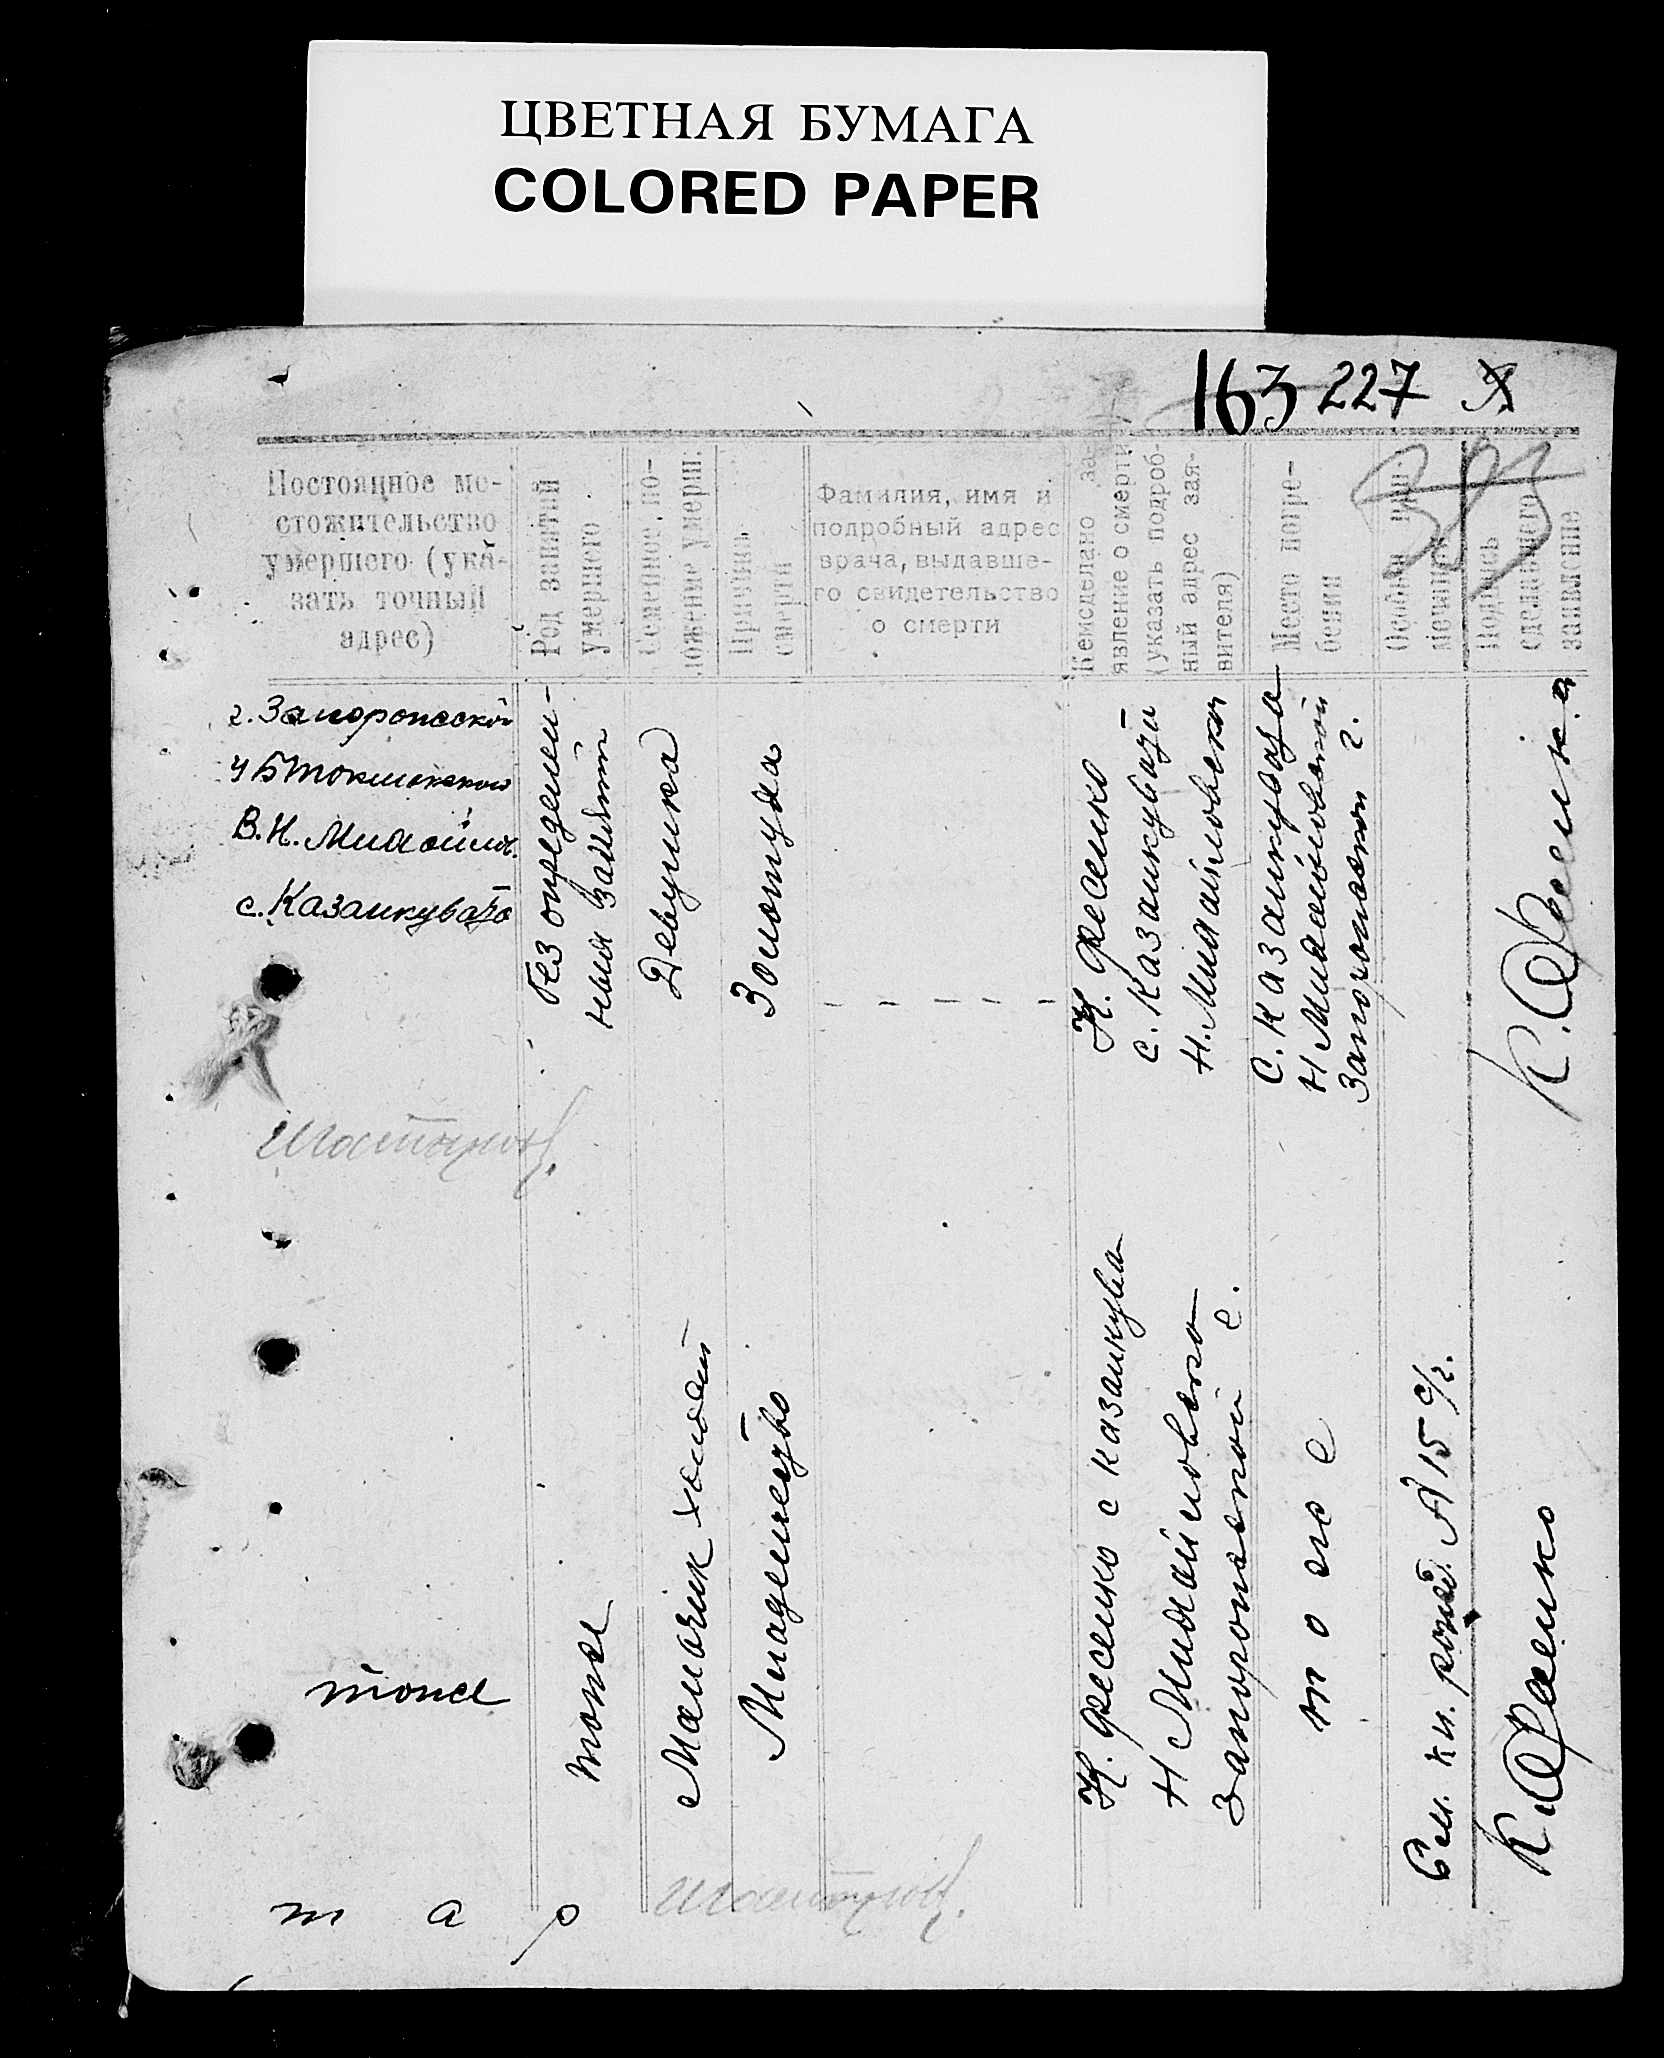 ЦВЕТНАЯ БУМАГА
COLORED PAPER
163 227
Постоянное ме-
стожительство
умершего (ука-
зать точный
адрес)
Род занятий
умершего
Семейное по-
ложение умерш.
Причина
смерти
Фамилия, имя и
подробный адрес
врача, выдавше-
го свидетельство
о смерти
Кем сделано за-
явление о смерти
(указать подроб-
ный адрес зая-
вителя)
Место погре-
бения
Особые
Подпись
сделавшего
заявление
В. Н.
с. Казанкувато
Без определен-
ных занятий
Девушка
Золотуха
К. Фесенко
с. Казанкувати
Н. Михайловской
С. Казанкувата
Н Михайловской
Запорожской г.
К. Фесенко
тоже
тоже
Мальчик холост
Младенчество
К. Фесенко с Казанкува
Н Михайловско
Запорожской г.
то же
См. кн. рожд. № 15 с/г.
К. Фесенко
м а р